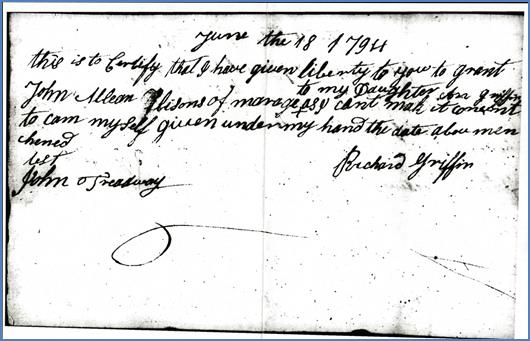 June the 18 1794
this is to Certify that I have given liberty to you to grant
to my Daughter Ann Griffin
John Mean Llisons of marage as I cant mak it convent
to cam my self given under my hand the date above men
chened
test
Richard Griffin
John Treadway